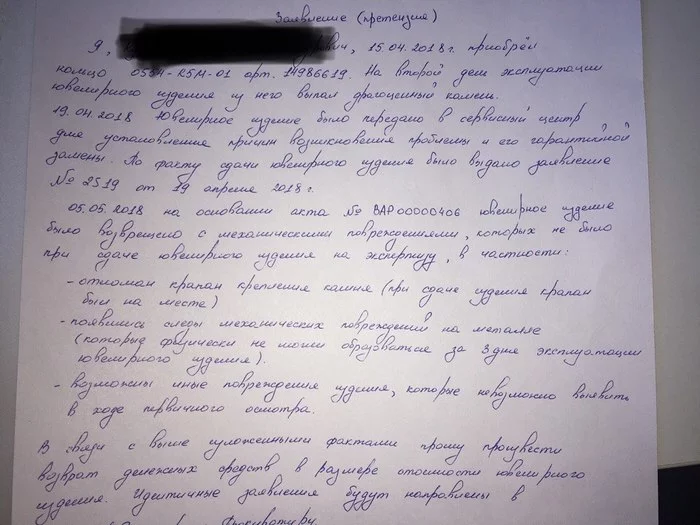 Заявление (претензия)
Я, вич, 15.04.2018г. приобрёл
кольцо арт. 14986619. На второй день эксплуатации
ювелирного изделия из него выпал драгоценный камень.
19.04.2018 Ювелирное изделие было передано в сервисный центр
для установления причин возникновения проблемы и его гарантийной
замены. По факту сдачи ювелирного изделия было выдано заявление
№ 2519 от 19 апреля 2018г.
05.05.2018 на основании акта № ВАР00000406 ювелирное изделие
было возвращено с механическими повреждениями, которых не было
при сдаче ювелирного изделия на экспертизу, в частности:
- отломан крапан крепления камня (при сдаче изделия крапан
был на месте)
- появились следы механических повреждений на металле
(которые физически не могли образоваться за 3 дня эксплуатации
ювелирного изделия).
- возможны иные повреждения изделия, которые невозможно выявить
в ходе первичного осмотра.
В связи с выше изложенными фактами прошу произвести
возврат денежных средств в размере стоимости ювелирного
изделия. Идентичные заявления будут направлены в
Прокуратуру.